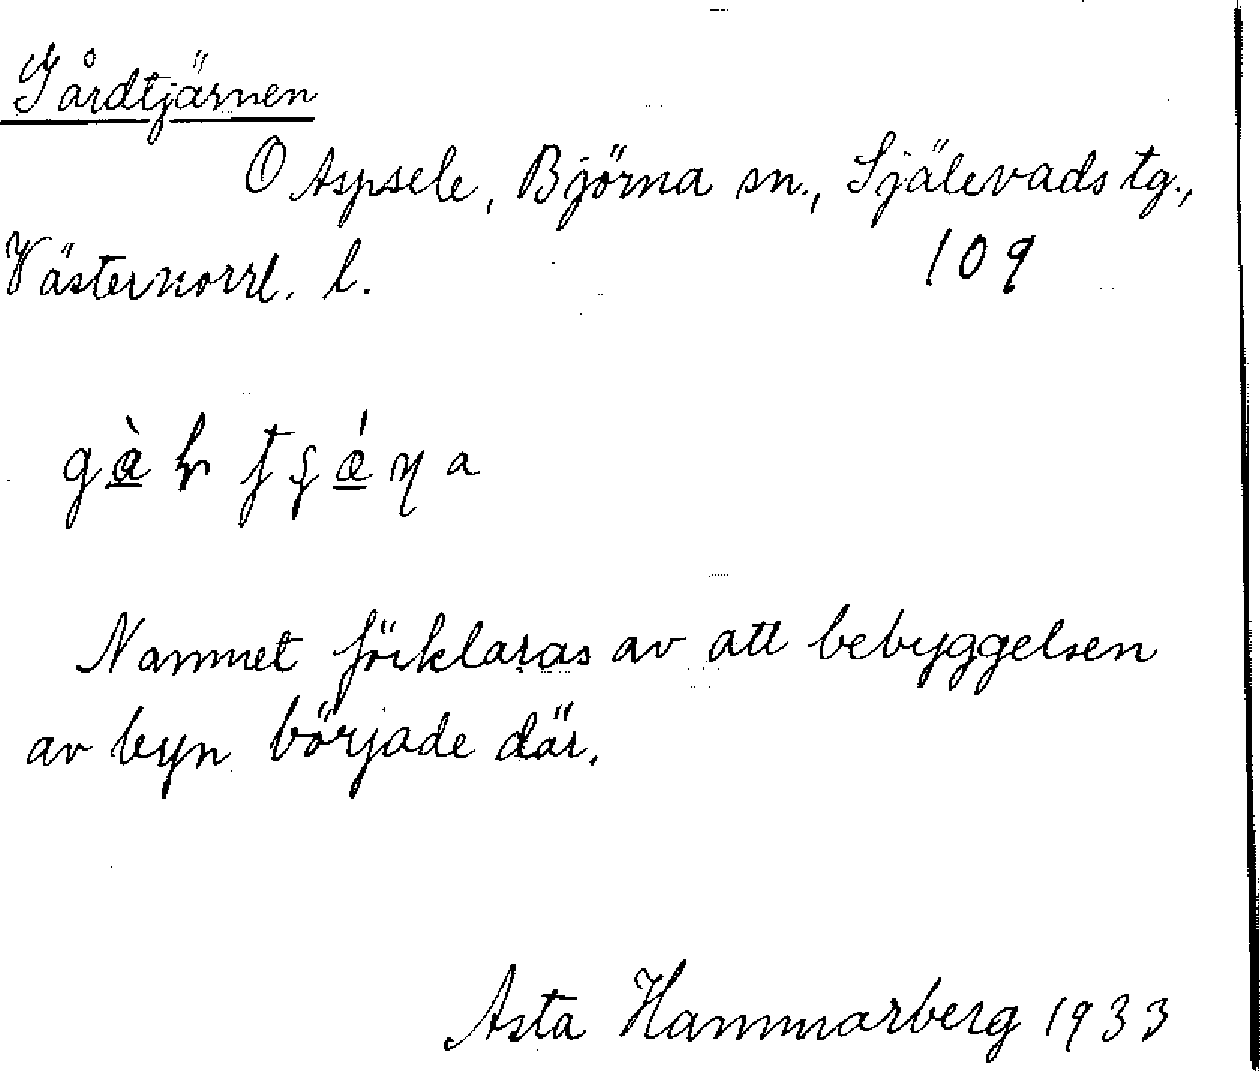 Gårdtjärnen
O Aspsele, Björna sn., Själevads tg.,
Västernorrl. l.
109
Namnet förklaras av att bebyggelsen
av byn började där.
Asta Hammarberg 1933